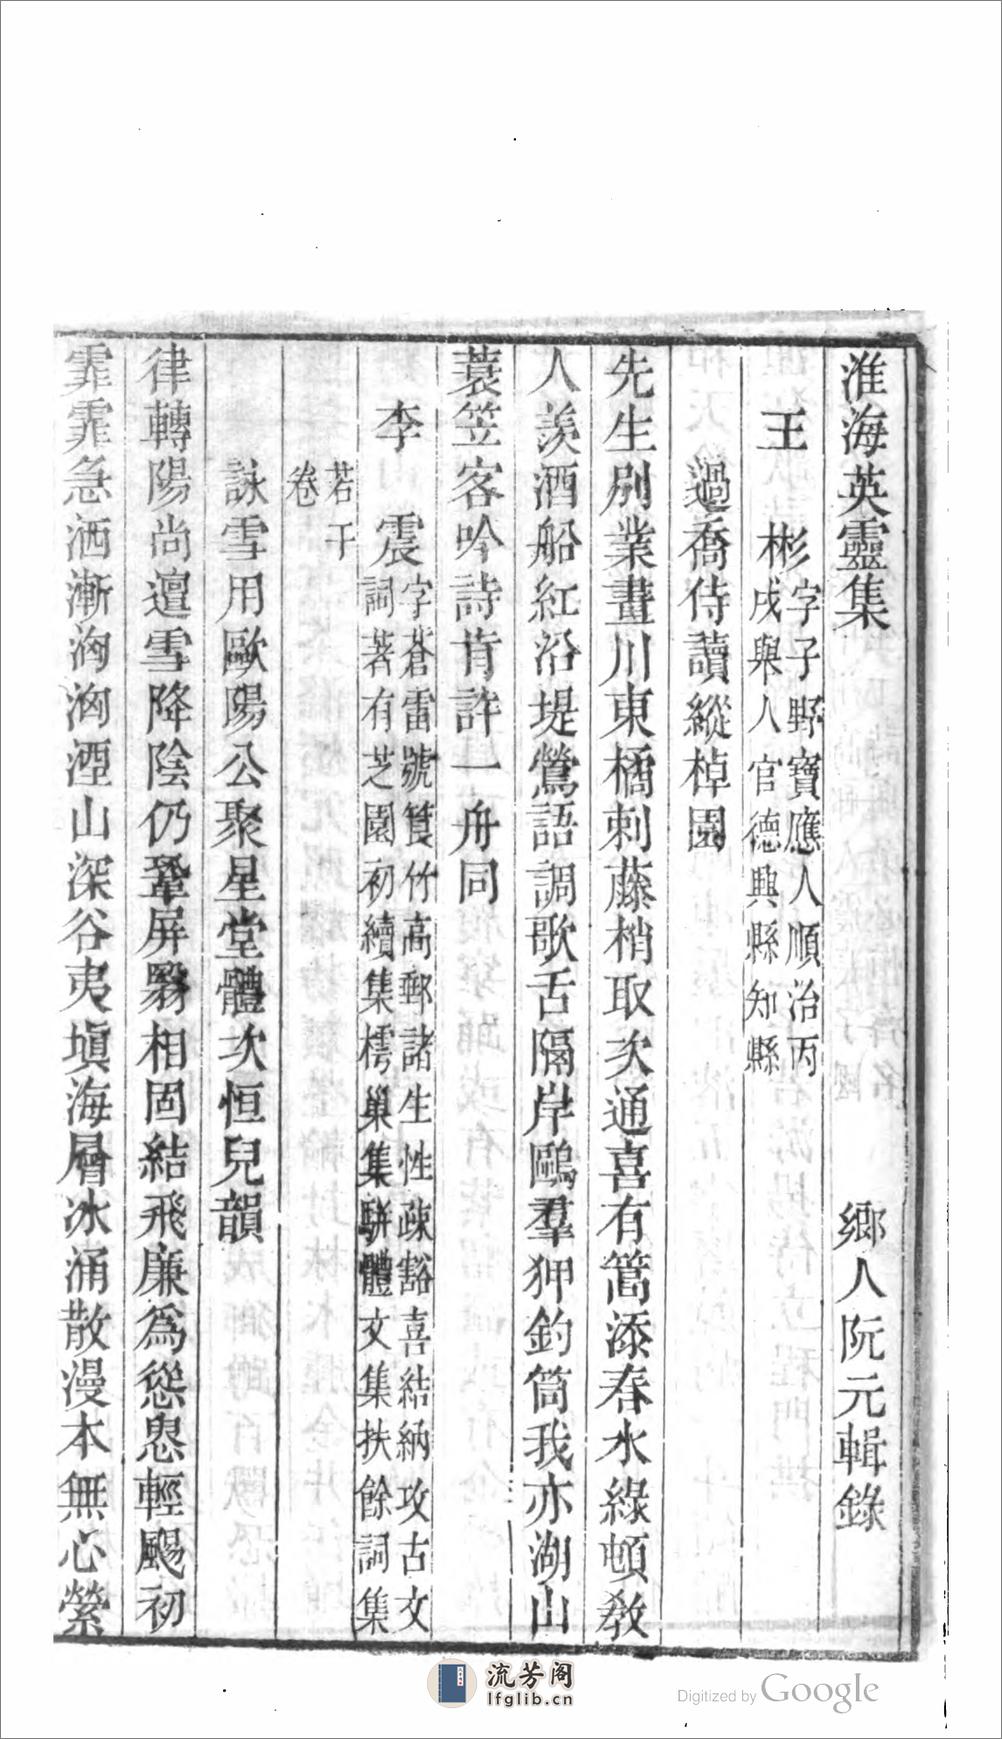 淮海英靈集
鄉人阮元輯錄
王　彬
字子野寶應人順治丙
戌舉人官德興縣知縣
過喬侍讀縱棹園
先生別業畫川東橘刺藤梢取次通喜有篙添春水綠頓教
人羨酒船紅沿堤鶯語調歌舌隔岸鷗羣狎釣筒我亦湖山
蓑笠客吟詩肯許一舟同
李　震
字蒼雷號簣竹高郵諸生性疎豁喜結納攻古文
詞著有芝園初續集樗巢集駢體文集扶餘詞集
若干
卷
詠雪用歐陽公聚星堂體次恒兒韻
律轉陽尚邅雪降陰仍鞏屏翳相固結飛廉爲慫恿輕颺初
霏霏急洒漸洶洶湮山深谷夷塡海層冰涌散漫本無心縈
Digitized by Google
流芳阁
lfglib.cn